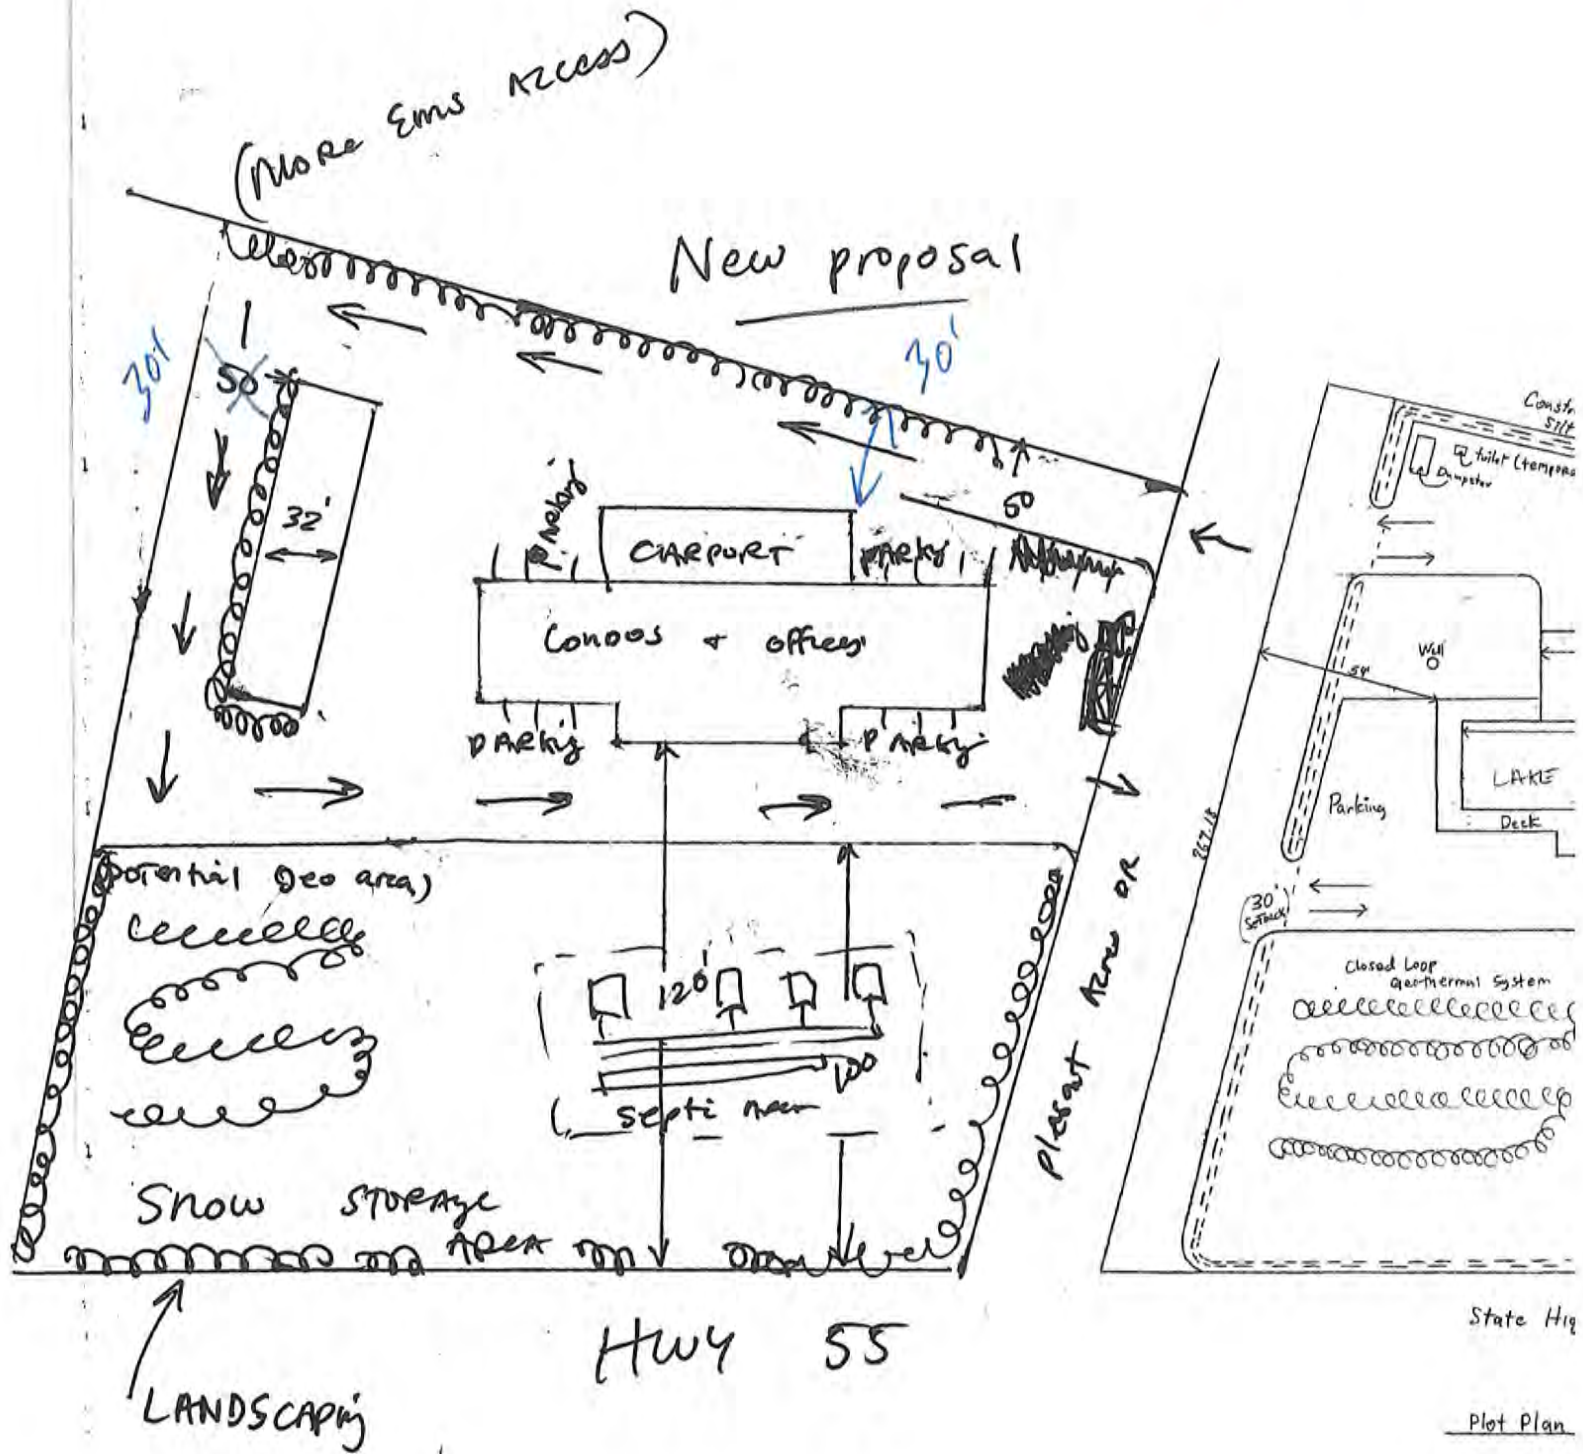 (More Ems Access)
New proposal
30'
30'
50
50
32'
Parkig
CARPORT
PARKg
Condos + offices
PARKig
PARKig
(Potential Geo area)
120'
100
Septi Area
Snow STORAge
AREA
LANDSCAPig
HWY 55
Plesant Acres DR
Constr
Silt
toilet (tempora
Dumpster
Well
54'
LAKE
Deck
Parking
267.18
30'
Setback
Closed Loop
Geothermal System
State Hig
Plot Plan